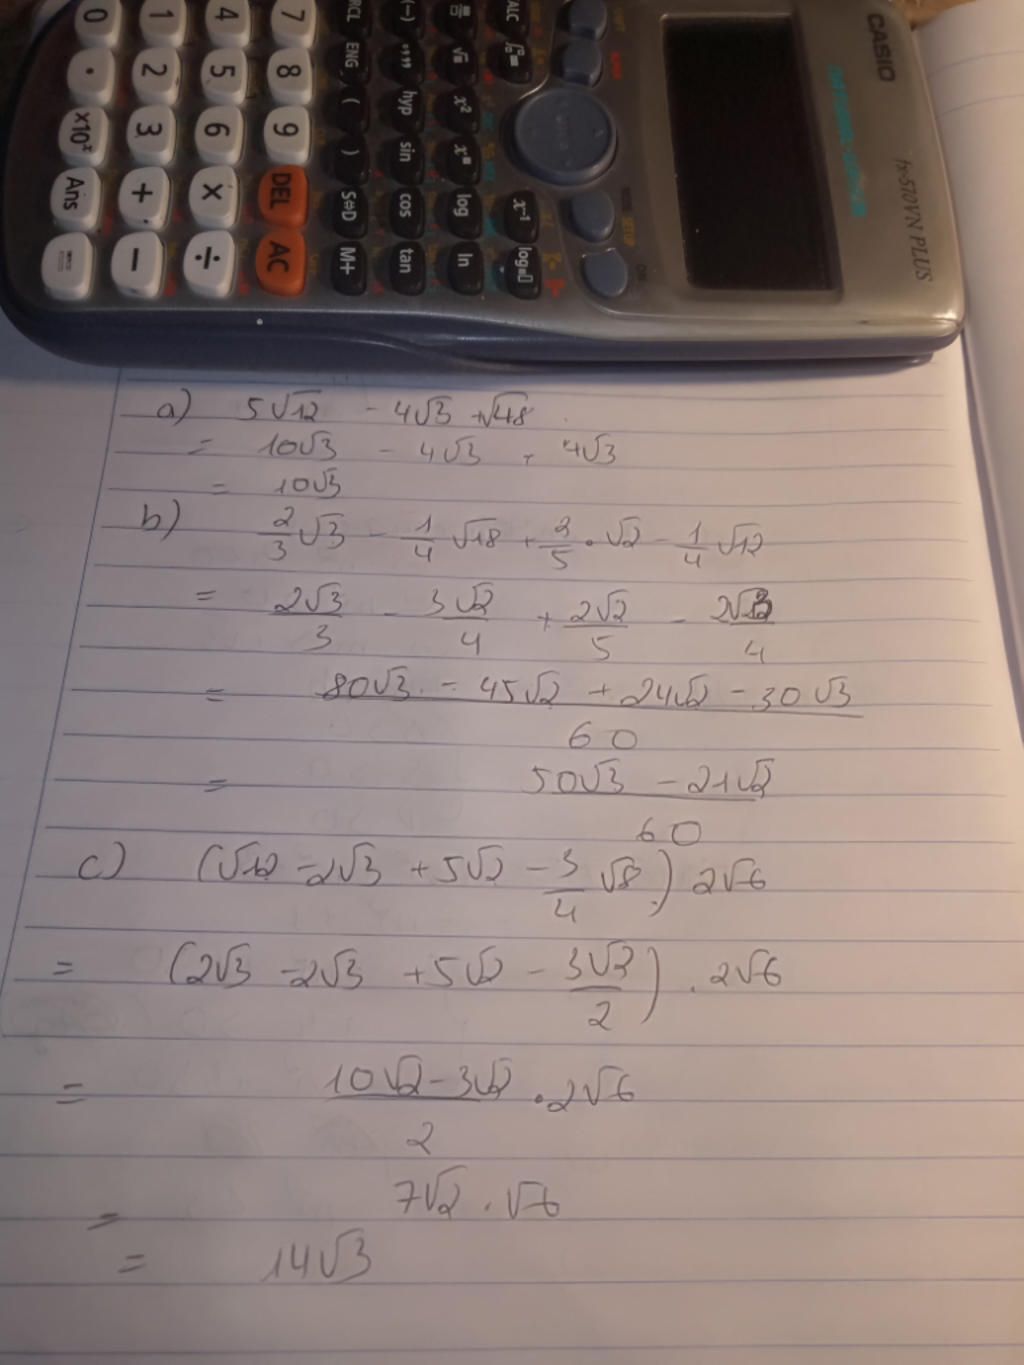 CASIO
fx-570VN PLUS
7 8 9 DEL AC
4 5 6 × ÷
1 2 3 + −
0 . ×10ˣ Ans =
RCL ENG ( ) S⇔D M+
(−) °''' hyp sin cos tan
√ x² log ln
CALC x⁻¹
a) 5√12 - 4√3 + √48
= 10√3 - 4√3 + 4√3
= 10√3
b) 2/3 √3 - 1/4 √18 + 2/5 . √2 - 1/4 √12
= 2√3/3 - 3√2/4 + 2√2/5 - 2√3/4
= (80√3 - 45√2 + 24√2 - 30√3)/60
= (50√3 - 21√2)/60
c) (√12 - 2√3 + 5√2 - 3/4 √8) 2√6
= (2√3 - 2√3 + 5√2 - 3√2/2) . 2√6
= (10√2 - 3√2)/2 . 2√6
= 7√2 . √6
= 14√3